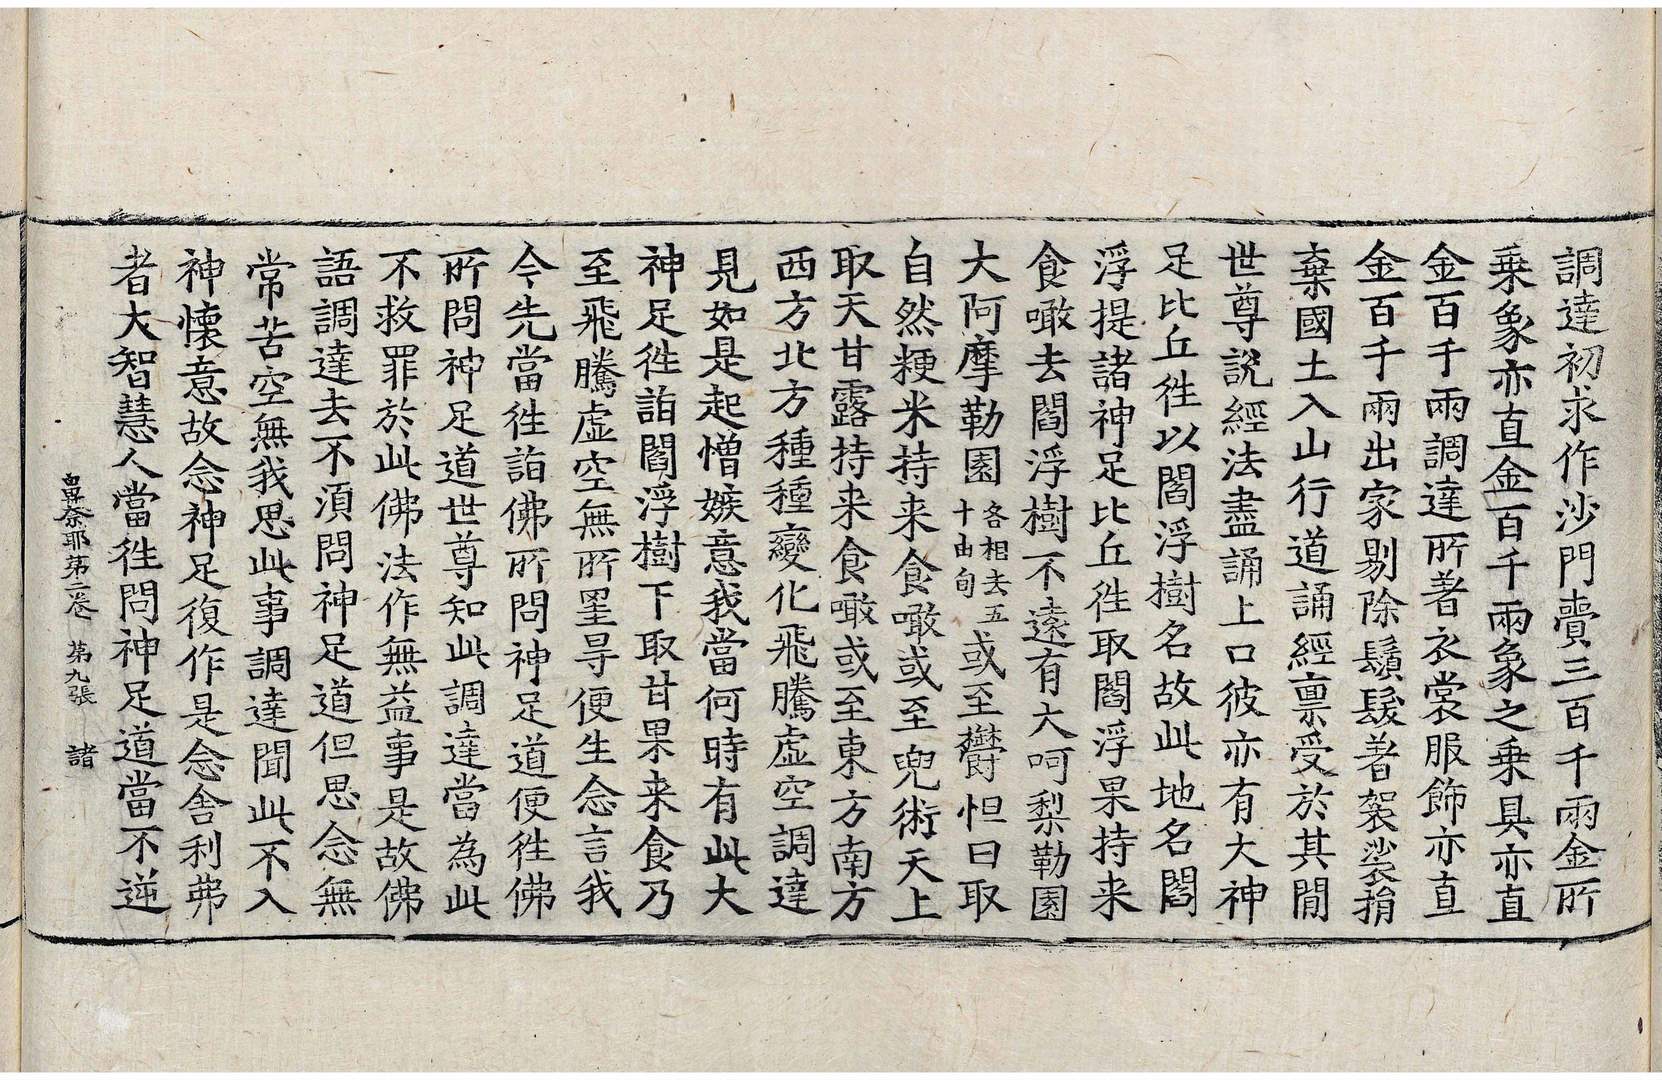 調達初求作沙門賣三百千兩金所
乗象亦直金百千兩象之乗具亦直
金百千兩調達所著衣裳服飾亦直
金百千兩出家剔除鬚髮著袈裟捐
棄國土入山行道誦經禀受於其間
世尊說經法盡誦上口彼亦有大神
足比丘徃以閻浮樹名故此地名閻
浮提諸神足比丘徃取閻浮果持来
食噉去閻浮樹不遠有大呵梨勒園
大阿摩勒園各相去五十由旬或至欝怛曰取
自然粳米持来食噉或至兜術天上
取天甘露持来食噉或至東方南方
西方北方種種變化飛騰虚空調達
見如是起憎嫉意我當何時有此大
神足徃詣閻浮樹下取甘果来食乃
至飛騰虚空無所罣㝵便生念言我
今先當徃詣佛所問神足道便徃佛
所問神足道世尊知此調達當為此
不救罪於此佛法作無益事是故佛
語調達去不須問神足道但思念無
常苦空無我思此事調達聞此不入
神懷意故念神足復作是念舍利弗
者大智慧人當徃問神足道當不逆
鼻奈耶第二卷 第九張 諸